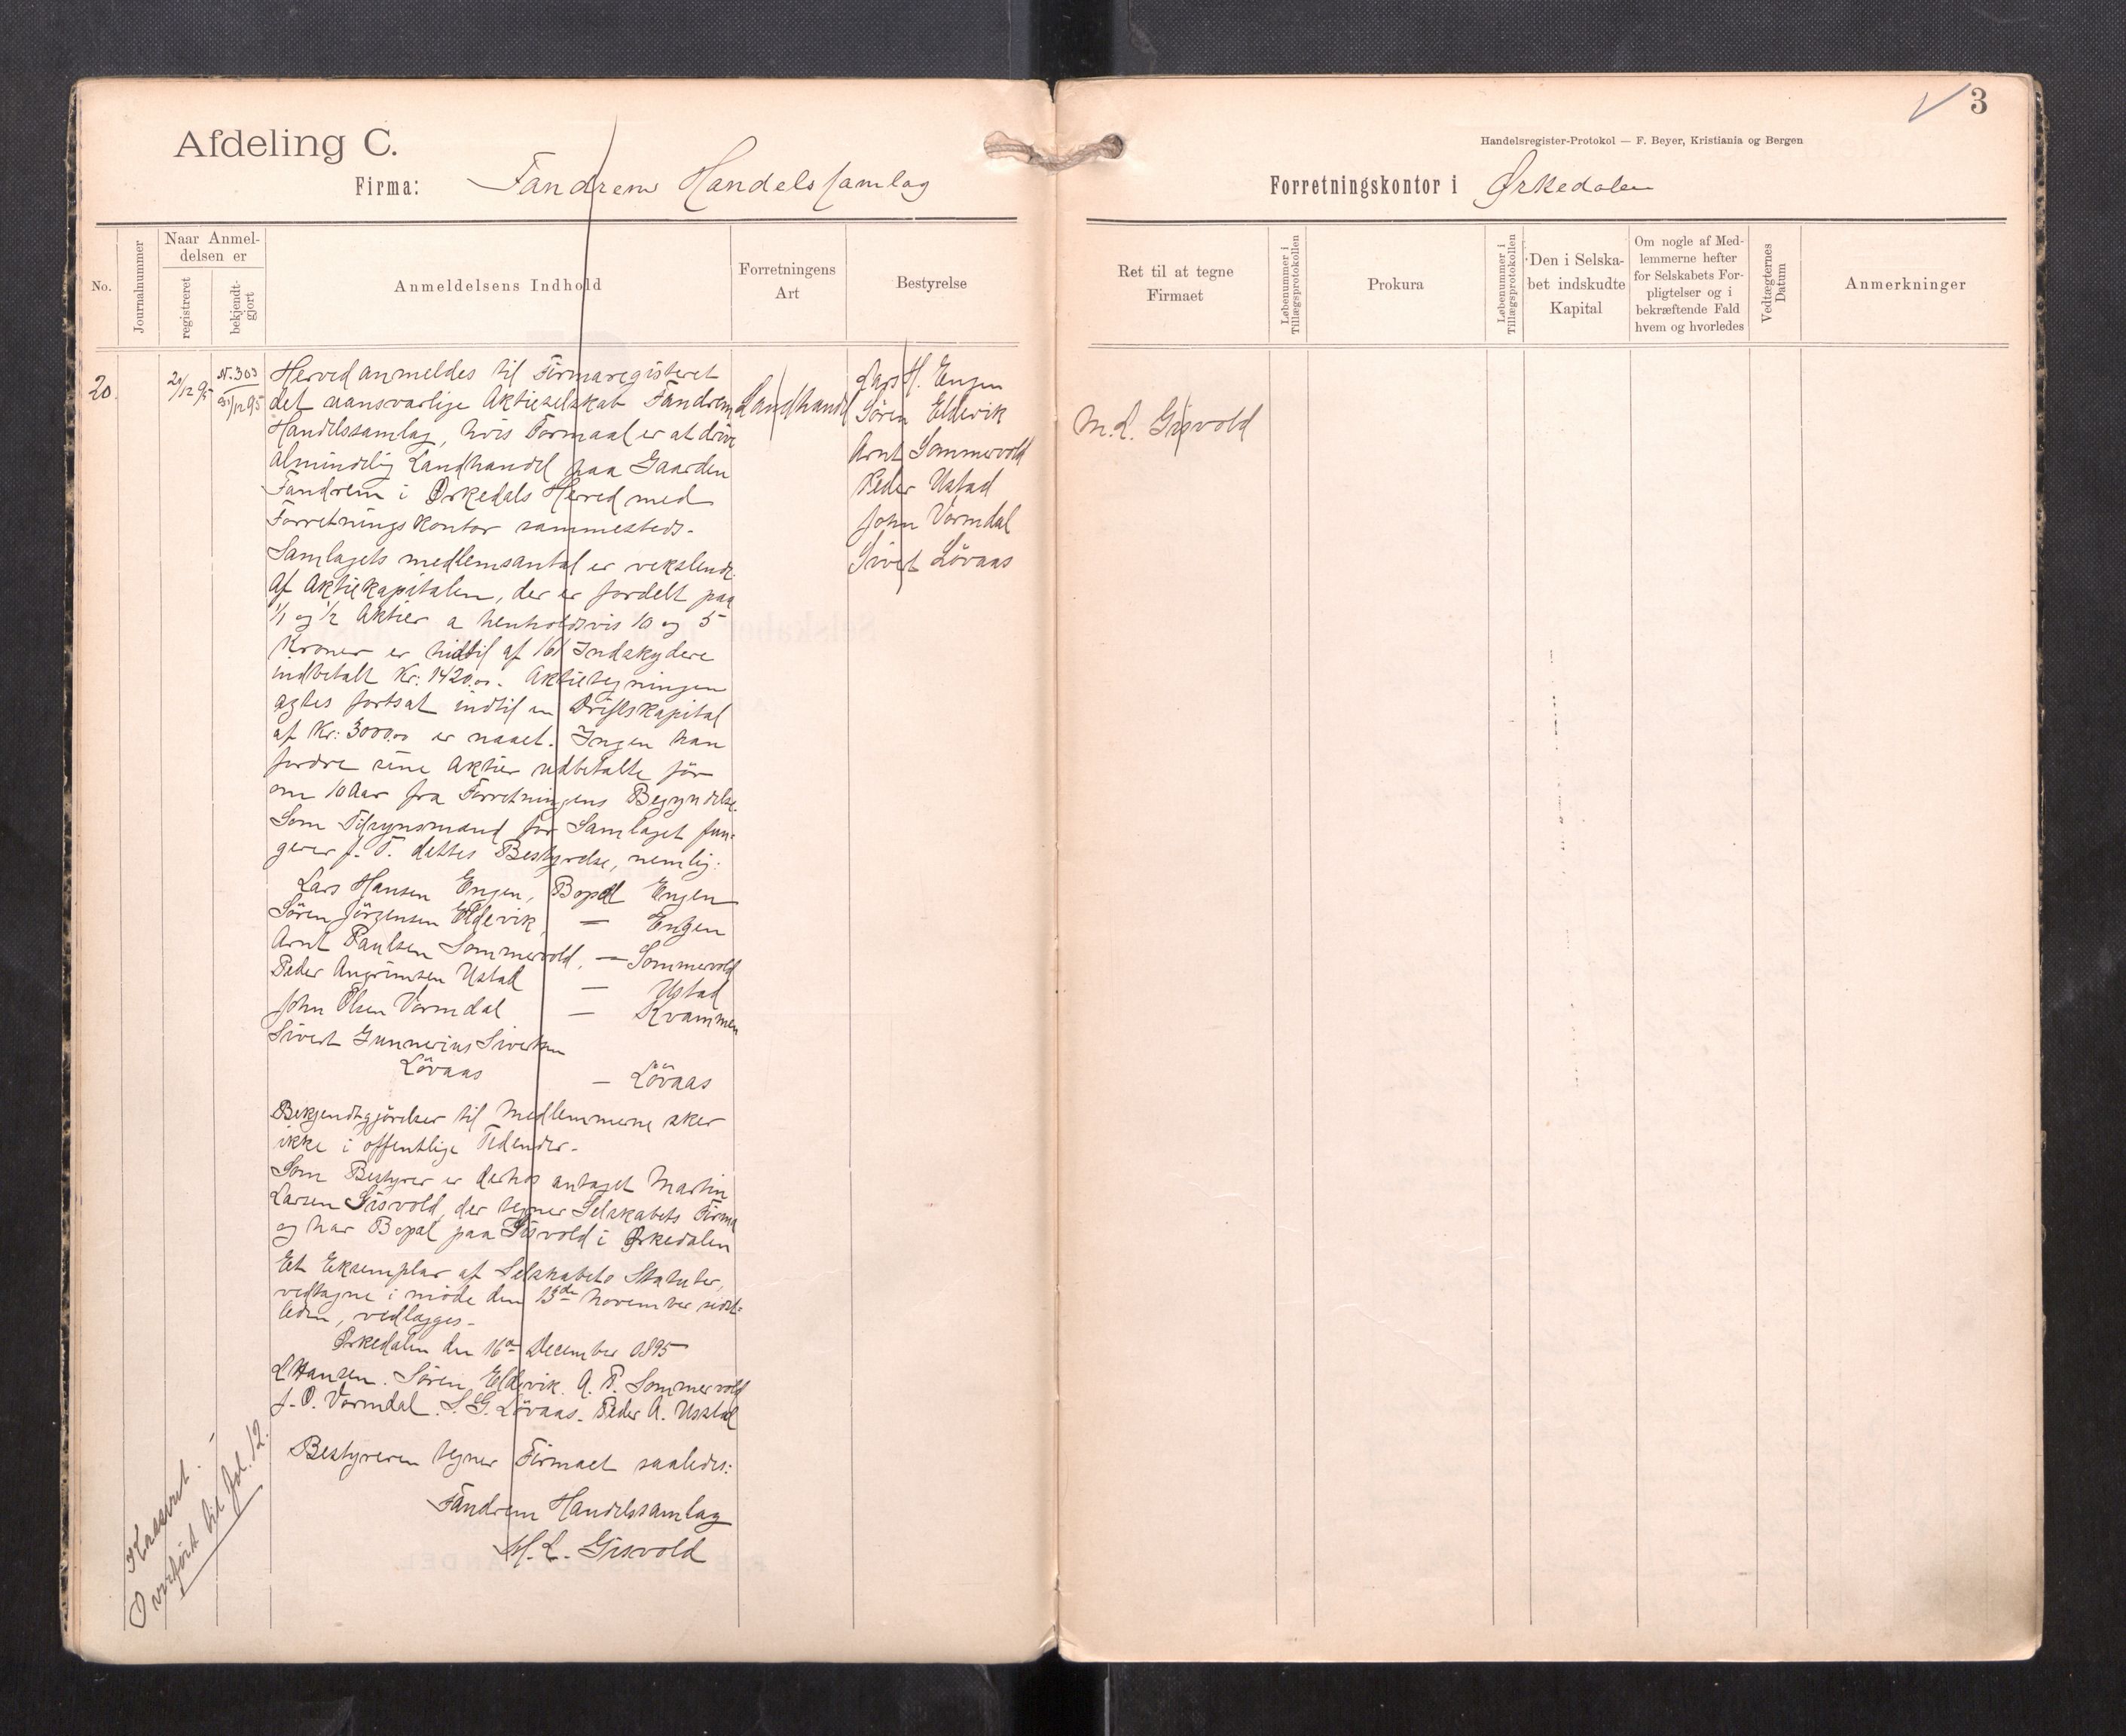 Afdeling C.
Firma: Fandrems Handelssamlag
No.
Journalnummer
Naar Anmel-
delsen er
registreret
bekjendt-
gjort
Anmeldelsens Indhold
Forretningens
Art
Bestyrelse
20.
20/12 95
N. 303
31/12 95
Herved anmeldes til Firmaregisteret
det uansvarlige Aktieselskab Fandrem
Handelssamlag, hvis Formaal er at drive
almindelig Landhandel paa Gaarden
Fandrem i Ørkedals Herred med
Forretningskontor sammesteds.
Samlagets medlemsantal er vekslende.
Af Aktiekapitalen, der er fordelt paa
1/1 og 1/2 Aktier a henholdsvis 10 og 5
Kroner er hidtil af 161 Indskydere
indbetalt Kr: 1420.00. Aktietegningen
agtes fortsat indtil en Driftskapital
af Kr: 3000.00 er naaet. Ingen kan
fordre sine Aktier udbetalte før
om 10 Aar fra Forretningens Begyndelse.
Som Tilsynsmænd for Samlaget fun-
gerer f. T. dettes Bestyrelse, nemlig:
Lars Hansen Engen, Bopæl Engen
Søren Jørgensen Eldevik, — Engen
Arnt Paulsen Sommervold, — Sommervold
Peder Angrimsen Ustad — Ustad
John Olsen Vormdal — Kvammen
Sivert Gunnerius Sivertsen
Løvaas — Løvaas
Bekjendtgjørelser til Medlemmerne sker
ikke i offentlige Tidender.
Som Bestyrer er derhos antaget Martin
Larsen Gisvold, der tegner Selskabets Firma
og har Bopæl paa Gisvold i Ørkedalen
Et Eksemplar af Selskabets Statuter,
vedtagne i møde den 13de November sidst-
leden, vedlægges.
Ørkedalen den 16de December 1895
L Hansen. Søren Eldevik. A. P. Sommervold
J. O. Vormdal. S. G. Løvaas. Peder A. Usstad
Bestyreren tegner Firmaet saaledes:
Fandrem Handelssamlag
M. L. Gisvold
Landhandel
Lars H. Engen
Søren Eldevik
Arnt Sommervold
Peder Ustad
John Vormdal
Sivert Løvaas
Kasseret.
Overført til fol. 12.
3
Handelsregister-Protokol — F. Beyer, Kristiania og Bergen
Forretningskontor i Ørkedalen
Ret til at tegne
Firmaet
Løbenummer i
Tillægsprotokollen
Prokura
Løbenummer i
Tillægsprotokollen
Den i Selska-
bet indskudte
Kapital
Om nogle af Med-
lemmerne hefter
for Selskabets For-
pligtelser og i
bekræftende Fald
hvem og hvorledes
Vedtægternes
Datum
Anmerkninger
M. L. Gisvold